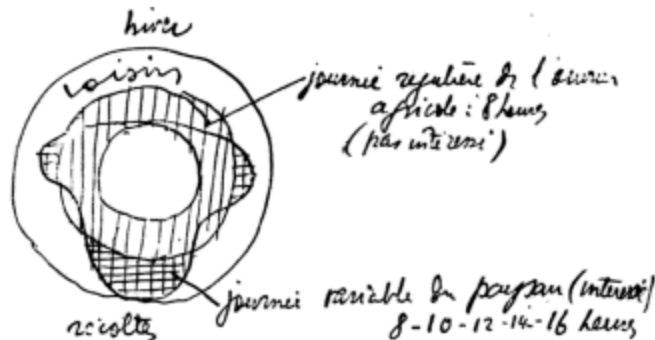 hiver
loisirs
journée régulière de l'ouvrier
agricole : 8 heures
(pas intéressé)
journée variable du paysan (intéressé)
8-10-12-14-16 heures
récoltes